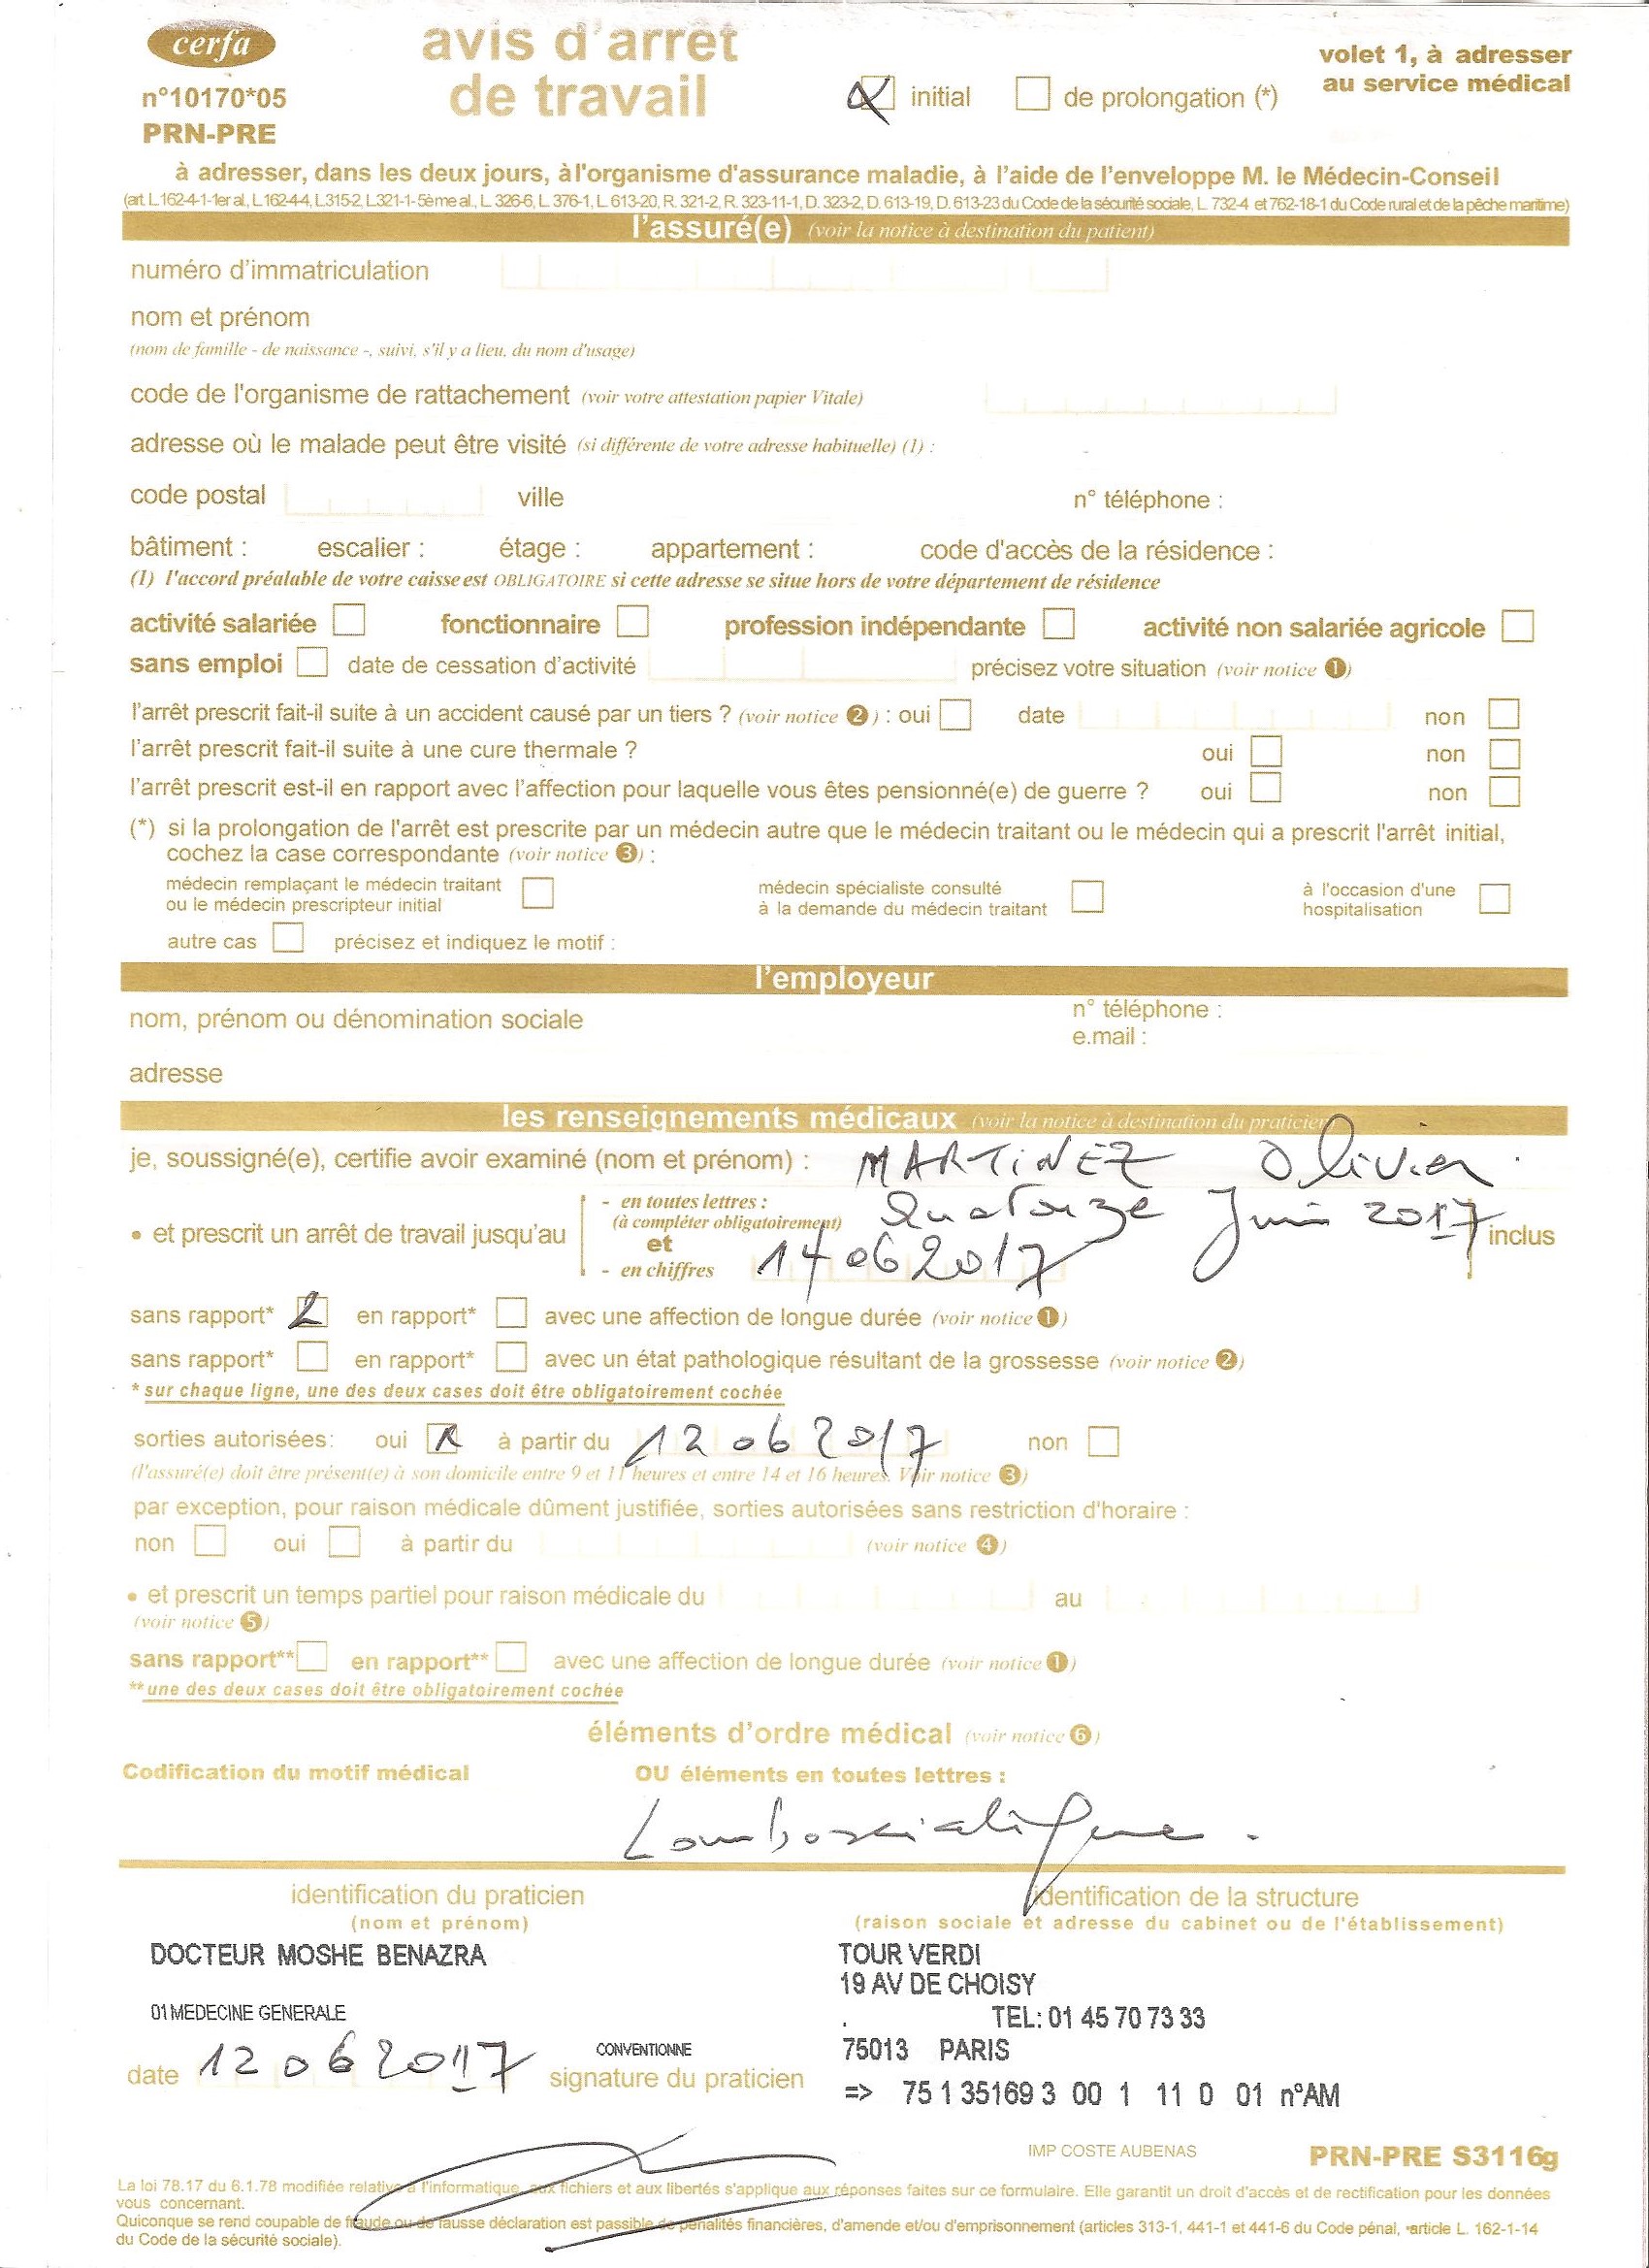 cerfa
avis d'arrêt
de travail
n°10170*05
PRN-PRE
initial de prolongation (*)
volet 1, à adresser
au service médical
à adresser, dans les deux jours, à l'organisme d'assurance maladie, à l'aide de l'enveloppe M. le Médecin-Conseil
(art. L.162-4-1-1er al., L.162-4-4, L.315-2, L.321-1-5ème al., L. 326-6, L. 376-1, L. 613-20, R. 321-2, R. 323-11-1, D. 323-2, D. 613-19, D. 613-23 du Code de la sécurité sociale, L. 732-4 et 762-18-1 du Code rural et de la pêche maritime)
l'assuré(e) (voir la notice à destination du patient)
numéro d'immatriculation
nom et prénom
(nom de famille - de naissance -, suivi, s'il y a lieu, du nom d'usage)
code de l'organisme de rattachement (voir votre attestation papier Vitale)
adresse où le malade peut être visité (si différente de votre adresse habituelle) (1) :
code postal ville n° téléphone :
bâtiment : escalier : étage : appartement : code d'accès de la résidence :
(1) l'accord préalable de votre caisse est OBLIGATOIRE si cette adresse se situe hors de votre département de résidence
activité salariée fonctionnaire profession indépendante activité non salariée agricole
sans emploi date de cessation d'activité précisez votre situation (voir notice 1)
l'arrêt prescrit fait-il suite à un accident causé par un tiers ? (voir notice 2) : oui date non
l'arrêt prescrit fait-il suite à une cure thermale ? oui non
l'arrêt prescrit est-il en rapport avec l'affection pour laquelle vous êtes pensionné(e) de guerre ? oui non
(*) si la prolongation de l'arrêt est prescrite par un médecin autre que le médecin traitant ou le médecin qui a prescrit l'arrêt initial,
cochez la case correspondante (voir notice 3) :
médecin remplaçant le médecin traitant
ou le médecin prescripteur initial
médecin spécialiste consulté
à la demande du médecin traitant
à l'occasion d'une
hospitalisation
autre cas précisez et indiquez le motif :
l'employeur
nom, prénom ou dénomination sociale
n° téléphone :
e.mail :
adresse
les renseignements médicaux (voir la notice à destination du praticien)
je, soussigné(e), certifie avoir examiné (nom et prénom) : MARTINEZ Olivier
- en toutes lettres : Quatorze Juin 2017
(à compléter obligatoirement)
• et prescrit un arrêt de travail jusqu'au et inclus
- en chiffres 14 06 2017
sans rapport* en rapport* avec une affection de longue durée (voir notice 1)
sans rapport* en rapport* avec un état pathologique résultant de la grossesse (voir notice 2)
* sur chaque ligne, une des deux cases doit être obligatoirement cochée
sorties autorisées: oui à partir du 12 06 2017 non
(l'assuré(e) doit être présent(e) à son domicile entre 9 et 11 heures et entre 14 et 16 heures. Voir notice 3)
par exception, pour raison médicale dûment justifiée, sorties autorisées sans restriction d'horaire :
non oui à partir du (voir notice 4)
• et prescrit un temps partiel pour raison médicale du au
(voir notice 5)
sans rapport** en rapport** avec une affection de longue durée (voir notice 1)
** une des deux cases doit être obligatoirement cochée
éléments d'ordre médical (voir notice 6)
Codification du motif médical OU éléments en toutes lettres :
Lombosciatique.
identification du praticien
(nom et prénom)
identification de la structure
(raison sociale et adresse du cabinet ou de l'établissement)
DOCTEUR MOSHE BENAZRA
01 MEDECINE GENERALE
CONVENTIONNE
TOUR VERDI
19 AV DE CHOISY
. TEL: 01 45 70 73 33
75013 PARIS
=> 75 1 35169 3 00 1 11 0 01 n°AM
date 12 06 2017 signature du praticien
IMP COSTE AUBENAS
PRN-PRE S3116g
La loi 78.17 du 6.1.78 modifiée relative à l'informatique, aux fichiers et aux libertés s'applique aux réponses faites sur ce formulaire. Elle garantit un droit d'accès et de rectification pour les données
vous concernant.
Quiconque se rend coupable de fraude ou de fausse déclaration est passible de pénalités financières, d'amende et/ou d'emprisonnement (articles 313-1, 441-1 et 441-6 du Code pénal, article L. 162-1-14
du Code de la sécurité sociale).